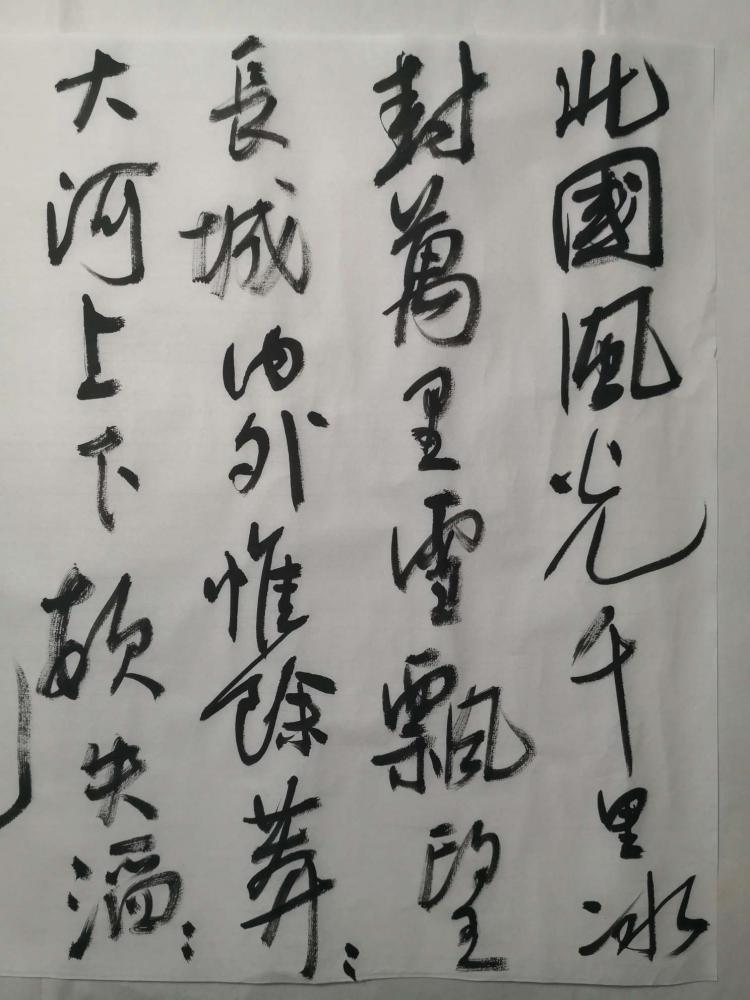 北國風光千里冰
封萬里雪飄望
長城内外惟餘莽〻
大河上下頓失滔〻